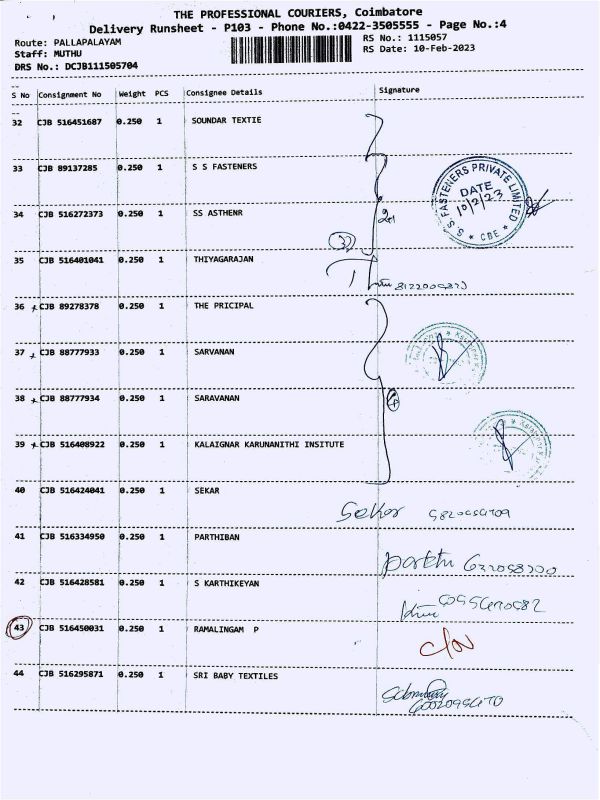 THE PROFESSIONAL COURIERS, Coimbatore
Delivery Runsheet - P103 - Phone No.:0422-3505555 - Page No.:4
Route: PALLAPALAYAM RS No.: 1115057
Staff: MUTHU RS Date: 10-Feb-2023
DRS No.: DCJB111505704
S No Consignment No Weight PCS Consignee Details Signature
32 CJB 516451687 0.250 1 SOUNDAR TEXTIE
33 CJB 89137285 0.250 1 S S FASTENERS
S S FASTENERS PRIVATE LIMITED
DATE
10/2/23
* CBE *
34 CJB 516272373 0.250 1 SS ASTHENR
35 CJB 516401041 0.250 1 THIYAGARAJAN
36 CJB 89278378 0.250 1 THE PRICIPAL
37 CJB 88777933 0.250 1 SARVANAN
38 CJB 88777934 0.250 1 SARAVANAN
39 CJB 516408922 0.250 1 KALAIGNAR KARUNANITHI INSITUTE
40 CJB 516424041 0.250 1 SEKAR
Sekar
41 CJB 516334950 0.250 1 PARTHIBAN
42 CJB 516428581 0.250 1 S KARTHIKEYAN
43 CJB 516450031 0.250 1 RAMALINGAM P
44 CJB 516295871 0.250 1 SRI BABY TEXTILES